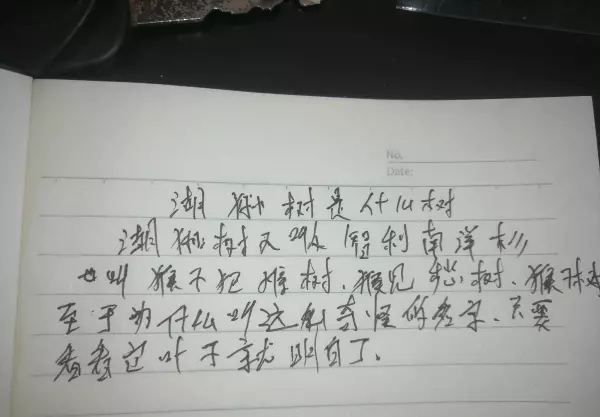 湖狲树是什么树
湖狲树又叫智利南洋杉
也叫猴不树、猴见愁树、猴
至于为什么叫这么奇怪的名字、只要
看看它叶子就明白了.
No.
Date: